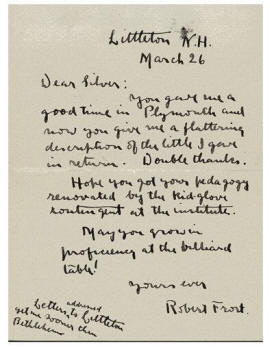 Littleton N.H.
March 26
Dear Silver:
You gave me a
good time in Plymouth and
now you give me a flattering
description of the little I gave
in return. Double thanks.
Hope you got your pedagogy
renovated by the kid-glove
contingent at the institute.
May you grow in
proficiency at the billiard
table!
Yours ever
Robert Frost.
Letters addressed
to Littleton
get me sooner than
Bethlehem